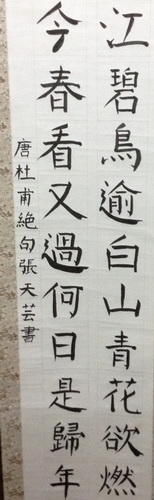 江碧鳥逾白山青花欲燃
今春看又過何日是歸年
唐杜甫絶句張天芸書